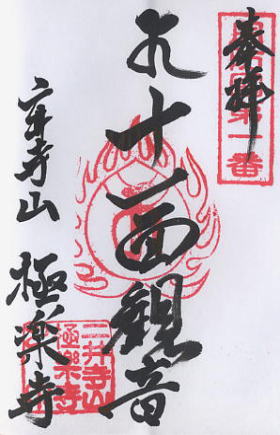 奉拝
第一番
十一面観音
二井寺山 極楽寺
二井寺山
極楽寺